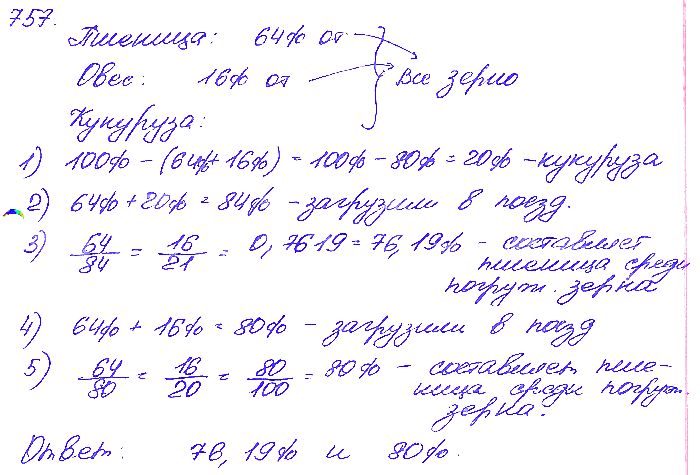 757.
Пшеница: 64% от
Овес: 16% от Все зерно
Кукуруза:
1) 100% - (64% + 16%) = 100% - 80% = 20% - кукуруза
2) 64% + 20% = 84% - загрузили в поезд.
3) 64/84 = 16/21 = 0,7619 = 76,19% - составляет
пшеница среди
погруж. зерна
4) 64% + 16% = 80% - загрузили в поезд
5) 64/80 = 16/20 = 80/100 = 80% - составляет пше-
ница среди погруж.
зерна.
Ответ: 76,19% и 80%.